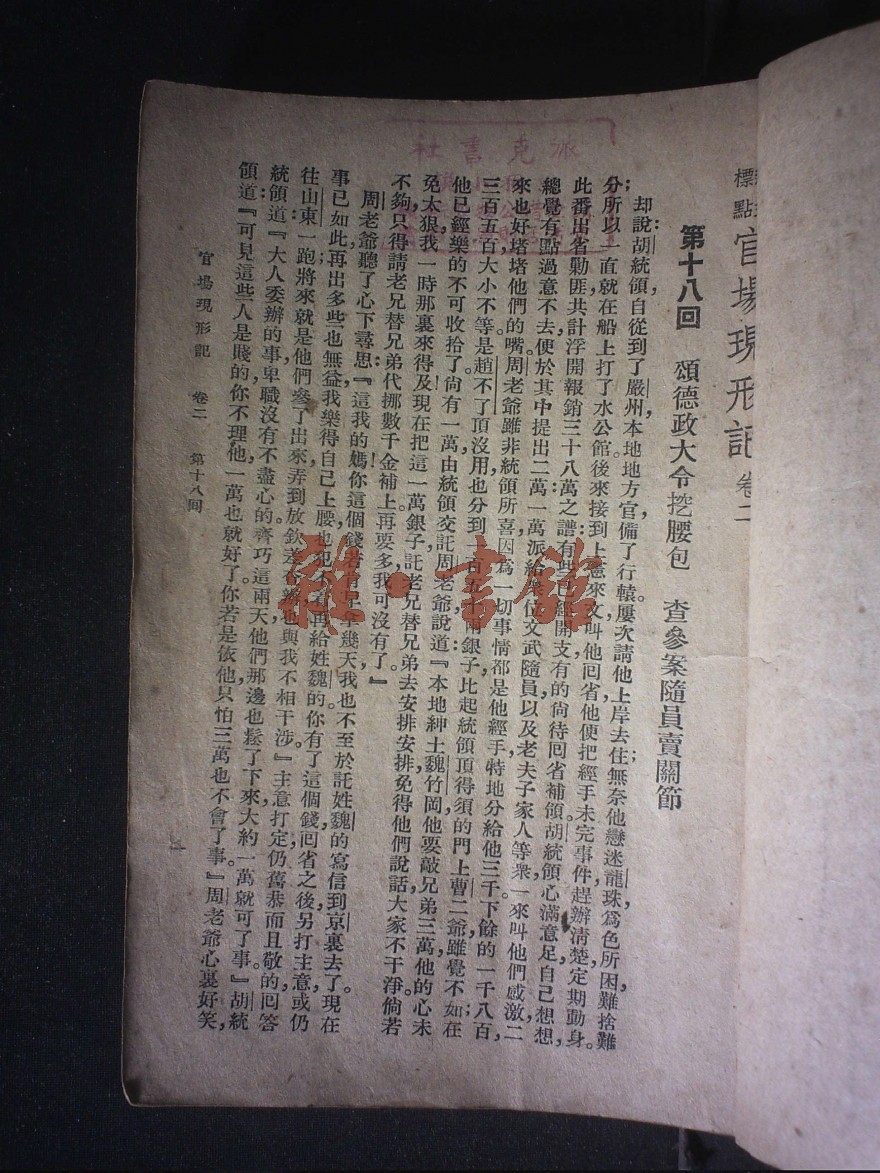 標點官場現形記 卷二
第十八回 頌德政大令挖腰包 查參案隨員賣關節
却說胡統領自從到了嚴州,本地地方官備了行轅,屢次請他上岸去住;無奈他戀迷龍珠,爲色所困,難捨難
分;所以一直就在船上打了水公館。後來接到上憲來文,叫他囘省,他便把經手未完事件,趕辦清楚,定期動身。
此番出省剿匪,共計浮開報銷三十八萬之譜:有些已經開支,有的尚待囘省補領。胡統領心滿意足,自己想想,
總覺有點過意不去,便於其中提出二萬:一萬派給衆位文武隨員,以及老夫子家人等衆,一來叫他們感激,二
來也好堵堵他們的嘴。周老爺雖非統領所喜,因爲一切事情都是他經手,特地分給他三千。下餘的一千八百,
三百五百,大小不等。是趙不了頂沒用,也分到一百五十兩銀子:比起統領頂得須的門上曹二爺雖覺不如;在
他已經樂的不可收拾了。尚有一萬,由統領交託周老爺說道:『本地紳士魏竹岡他要敲兄弟三萬,他的心未
免太狠,我一時那裏來得及!現在把這一萬銀子,託老兄替兄弟去安排安排,免得他們說話,大家不干淨。倘若
不夠,只得請老兄替兄弟代挪數千金補上。再要多,我可沒有了。』
周老爺聽了,心下尋思:『這我的媽!你這個錢若
幾天我也不至於託姓魏的寫信到京裏去了。現在
事已如此,再出多些也無益,我樂得自己上腰,也犯
再給姓魏的。你有了這個錢,囘省之後,另打主意,或仍
往山東一跑;將來就是他們參了出來,弄到放欽差
辦,也與我不相干涉。』主意打定,仍舊恭而且敬的囘答
統領道:『大人委辦的事,卑職沒有不盡心的。齊巧這兩天他們那邊也鬆了下來,大約一萬就可了事。』胡統
領道:『可見這些人是賤的,你不理他,一萬也就好了;你若是依他,只怕三萬也不會了事。』周老爺心裏好笑,
官場現形記 卷二 第十八囘
一
派克書社
雜·書館